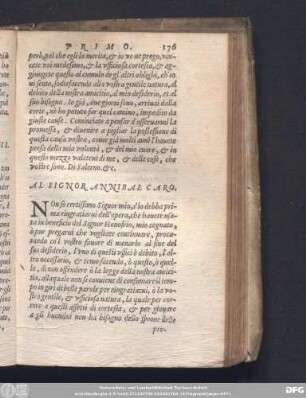 PRIMO. 176
però, poi che egli lo merita, & io ve ne prego, vsa-
te voi medesimo, & la vfficiosa cortesia, & ag-
giungete questo al cumulo de gl'altri oblighi, ch'io
mi sento, sodisfacendo al'a vostra gentil natura, al
debito della nostra amicitia, al mio desiderio, et al
suo bisogno. Io giò, due giorni sono, arriuai dalla
corte, nè ho potuto far quel camino, impedito da
giuste cause. Cominciate a pensar d'osseruarmi la
promessa, & diuenire a pigliar la possessione di
questa casa vostra, come già molti anni l'hauete
presa della mia volontà, & del mio cuore, & in
questo mezzo valeteui di me, & delle cose, che
voltre sono. Di Salerno. &c.
AL SIGNOR ANNIBAL CARO.
NOn so certissimo Signor mio, s'io debba pri-
ma ringratiarui dell'opera, che hauete vsa-
ta in beneficio del Signor mio cognato,
ò pur pregarui che vogliate continuare, procu-
rando co'l vostro fauore di menarlo al fine del
suo desiderio, l'vno di questi vfficii è debito, l'al-
tro necessario, & temo facendo, ò questo, ò quel-
lo, di non offendere ò la legge della nostra amici-
tia, alla quale non si conuiene di consumarui tem-
po in giri di belle parole per ringratiarui, ò la vo-
stra gentile, & vfficiosa natura, la quale per cor-
rere a quelli effetti di cortesia, & per giouare
a gli huomini non ha bisogno dello sprone delle
pre-